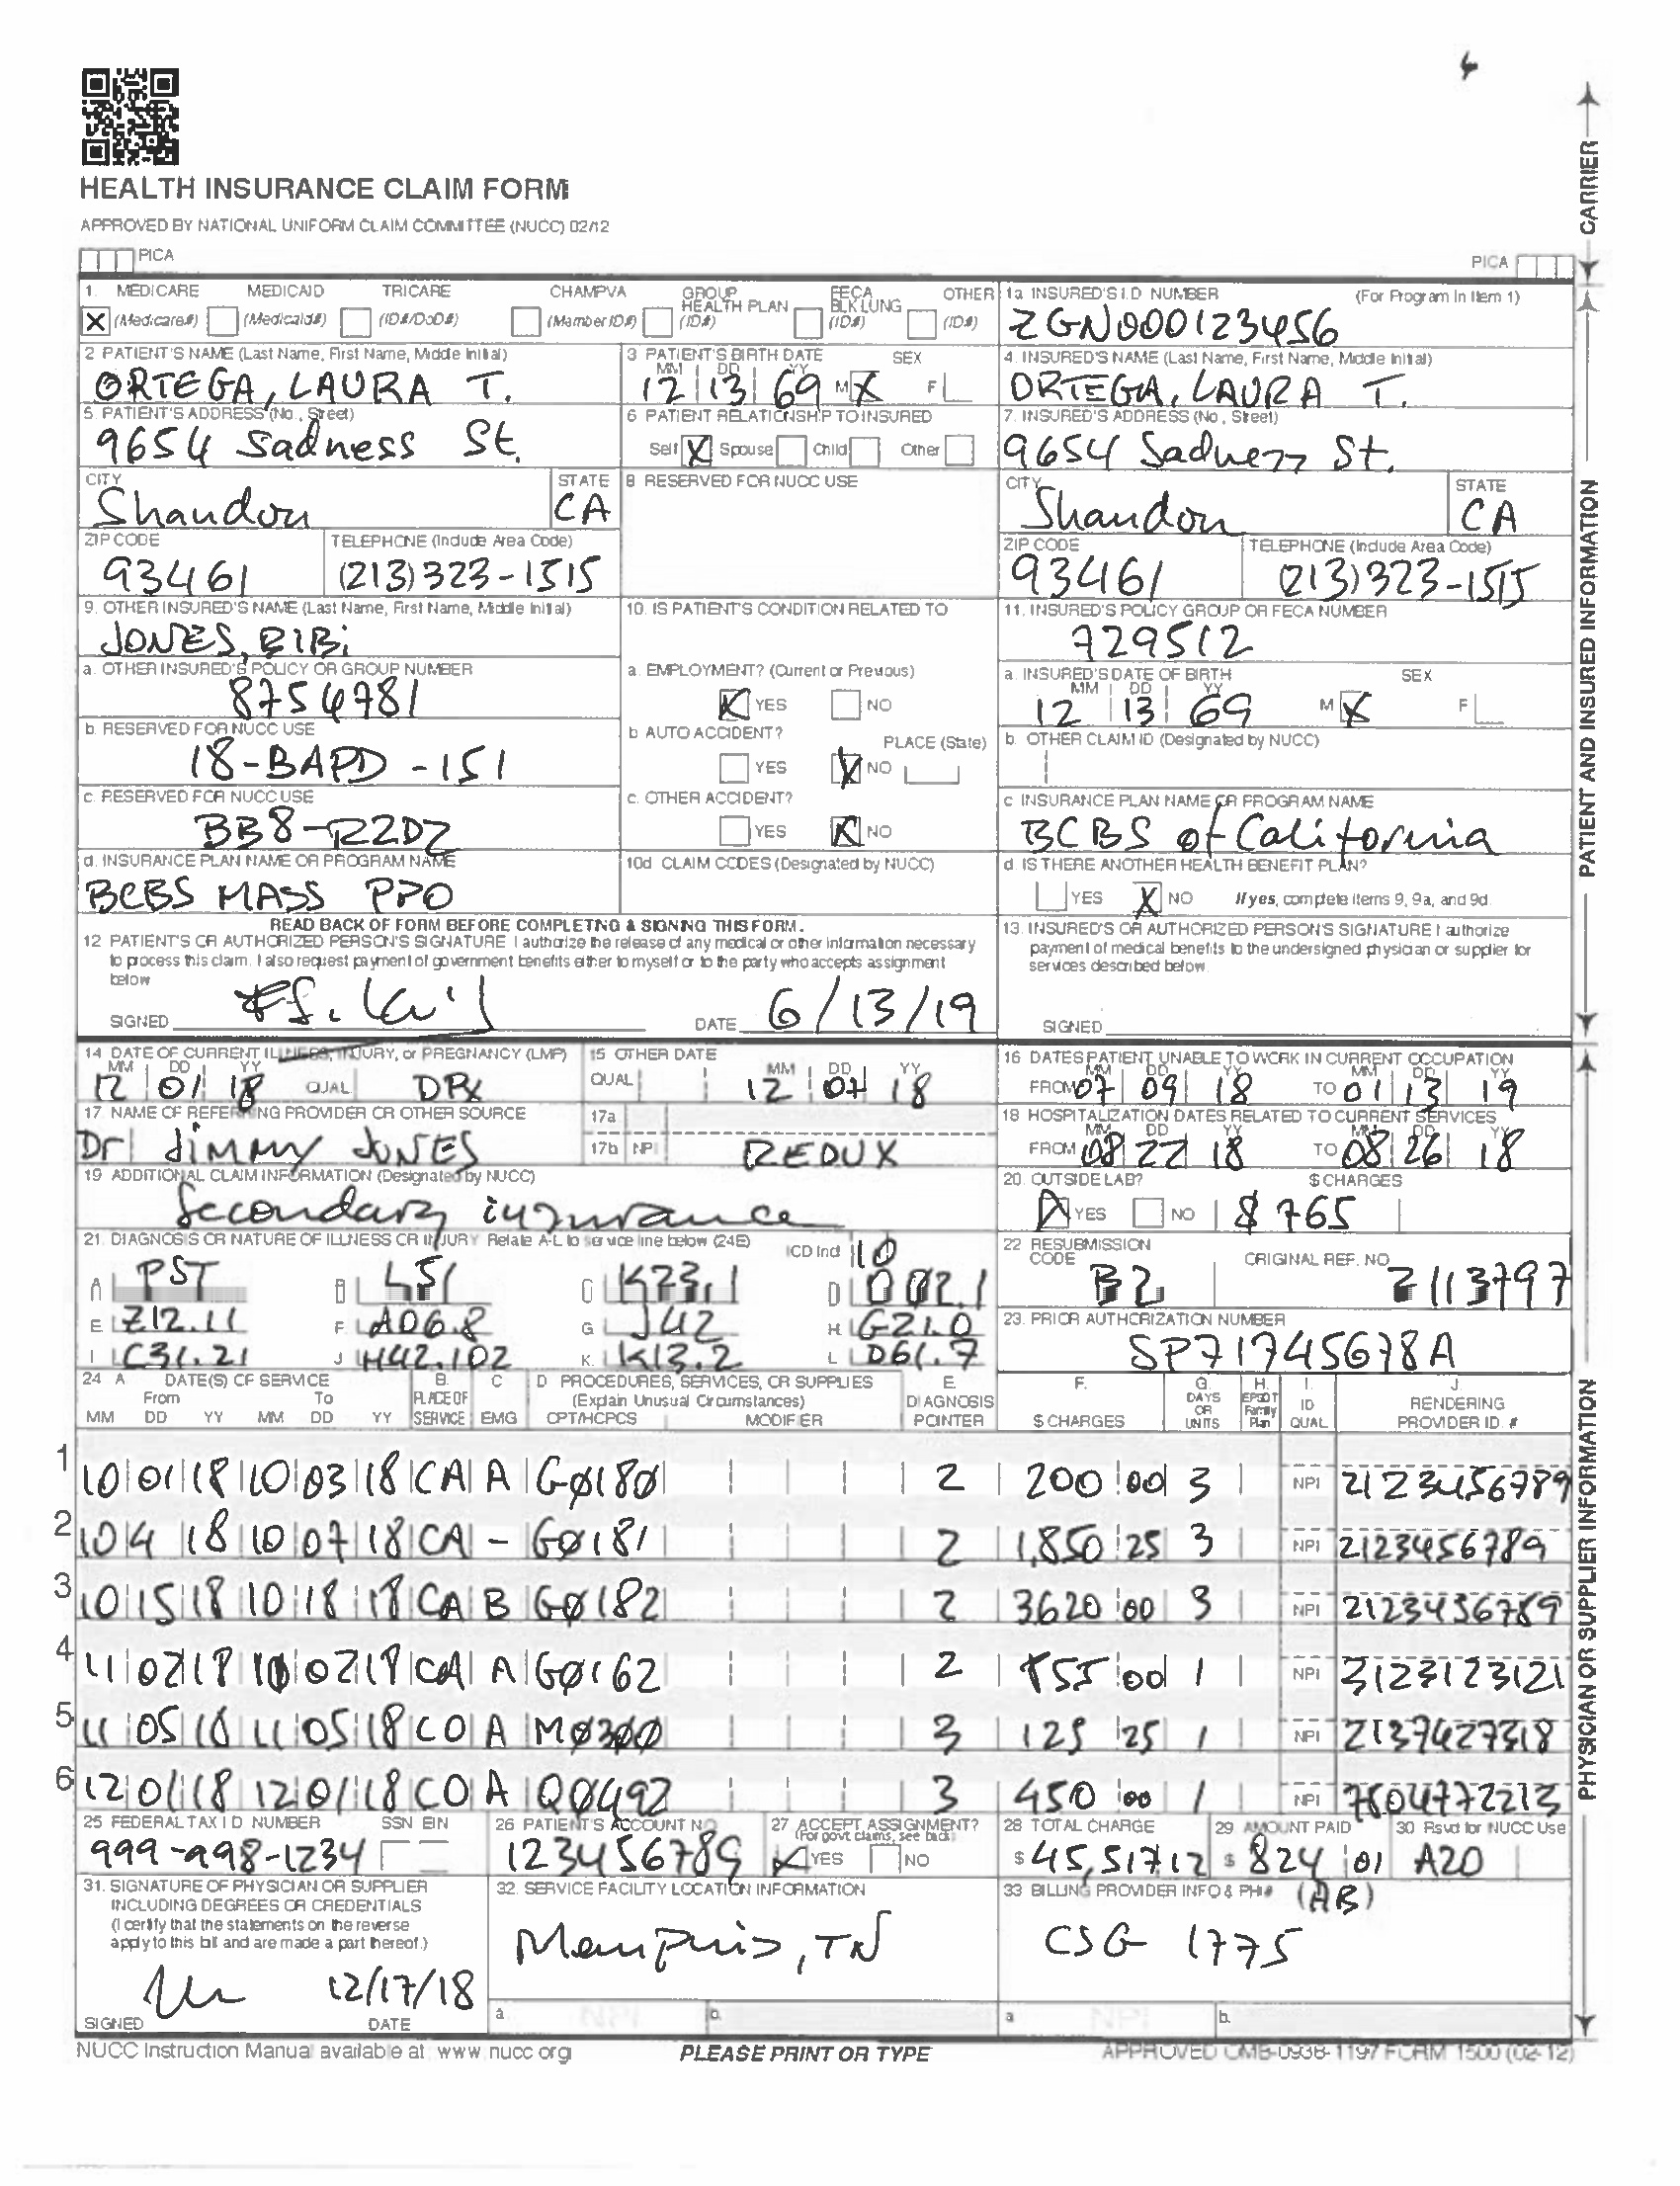 HEALTH INSURANCE CLAIM FORM
APPROVED BY NATIONAL UNIFORM CLAIM COMMITTEE (NUCC) 02/12
PICA
PICA
CARRIER
1. MEDICARE MEDICAID TRICARE CHAMPVA GROUP HEALTH PLAN FECA BLK LUNG OTHER
X (Medicare#) (Medicaid#) (ID#/DoD#) (Member ID#) (ID#) (ID#) (ID#)
1a INSURED'S I.D NUMBER (For Program In Item 1)
ZGN000123456
2 PATIENT'S NAME (Last Name, First Name, Middle Initial)
ORTEGA, LAURA T.
3 PATIENT'S BIRTH DATE SEX
MM DD YY
12 13 69 M X F
4. INSURED'S NAME (Last Name, First Name, Middle Initial)
ORTEGA, LAURA T.
5. PATIENT'S ADDRESS (No., Street)
9654 Sadness St.
6 PATIENT RELATIONSHIP TO INSURED
Self X Spouse Child Other
7. INSURED'S ADDRESS (No, Street)
9654 Sadness St.
CITY STATE
Shandon CA
8 RESERVED FOR NUCC USE
CITY STATE
Shandon CA
ZIP CODE TELEPHONE (Include Area Code)
93461 (213) 323-1515
ZIP CODE TELEPHONE (Include Area Code)
93461 (213) 323-1515
9. OTHER INSURED'S NAME (Last Name, First Name, Middle Initial)
JONES, BIBi
10. IS PATIENT'S CONDITION RELATED TO
11. INSURED'S POLICY GROUP OR FECA NUMBER
729512
a. OTHER INSURED'S POLICY OR GROUP NUMBER
8754781
a. EMPLOYMENT? (Current or Previous)
X YES NO
a. INSURED'S DATE OF BIRTH SEX
MM DD YY
12 13 69 M X F
b. RESERVED FOR NUCC USE
18-BAPD-151
b AUTO ACCIDENT? PLACE (State)
YES X NO
b. OTHER CLAIM ID (Designated by NUCC)
c. RESERVED FOR NUCC USE
BB8-R2D2
c. OTHER ACCIDENT?
YES X NO
c INSURANCE PLAN NAME OR PROGRAM NAME
BCBS of California
d. INSURANCE PLAN NAME OR PROGRAM NAME
BCBS MASS PPO
10d CLAIM CODES (Designated by NUCC)
d. IS THERE ANOTHER HEALTH BENEFIT PLAN?
YES X NO If yes, complete items 9, 9a, and 9d.
READ BACK OF FORM BEFORE COMPLETING & SIGNING THIS FORM.
12 PATIENT'S OR AUTHORIZED PERSON'S SIGNATURE I authorize the release of any medical or other information necessary
to process this claim. I also request payment of government benefits either to myself or to the party who accepts assignment
below
SIGNED DATE 6/13/19
13. INSURED'S OR AUTHORIZED PERSON'S SIGNATURE I authorize
payment of medical benefits to the undersigned physician or supplier for
services described below.
SIGNED
PATIENT AND INSURED INFORMATION
14 DATE OF CURRENT ILLNESS, INJURY, or PREGNANCY (LMP)
MM DD YY
12 01 18 QUAL DRX
15 OTHER DATE
QUAL MM DD YY
12 18
16 DATES PATIENT UNABLE TO WORK IN CURRENT OCCUPATION
MM DD YY MM DD YY
FROM 07 09 18 TO 01 13 19
17 NAME OF REFERRING PROVIDER OR OTHER SOURCE
Dr Jimmy JONES
17a
17b NPI REDUX
18 HOSPITALIZATION DATES RELATED TO CURRENT SERVICES
MM DD YY MM DD YY
FROM 08 22 18 TO 08 26 18
19 ADDITIONAL CLAIM INFORMATION (Designated by NUCC)
Secondary insurance
20. OUTSIDE LAB? $ CHARGES
X YES NO $ 765
21. DIAGNOSIS OR NATURE OF ILLNESS OR INJURY Relate A-L to service line below (24E) ICD Ind 10
A PST B L51 C K23.1 D 002.1
E Z12.11 F. A06.8 G J42 H. G21.0
I C31.21 J H42.102 K. K13.2 L D61.7
22 RESUBMISSION CODE ORIGINAL REF. NO
B2 2113797
23. PRIOR AUTHORIZATION NUMBER
SP71745678A
24 A DATE(S) OF SERVICE B. C D PROCEDURES, SERVICES, OR SUPPLIES E. F. G. H. I. J.
From To PLACE OF (Explain Unusual Circumstances) DIAGNOSIS DAYS OR UNITS EPSDT Family Plan ID QUAL RENDERING
MM DD YY MM DD YY SERVICE EMG CPT/HCPCS MODIFIER POINTER $ CHARGES PROVIDER ID. #
1 10 01 18 10 03 18 CA A G0180 2 200 00 3 NPI 2123456789
2 10 4 18 10 07 18 CA - G0181 2 1,850 25 3 NPI 2123456789
3 10 15 18 10 18 18 CA B G0182 2 3620 00 3 NPI 2123456789
4 11 02 18 02 18 CA A G0162 2 855 00 1 NPI 3123123121
5 11 05 18 11 05 18 CO A M0300 3 125 25 1 NPI 2137427318
6 12 01 18 12 01 18 CO A Q0492 3 450 00 1 NPI 7604772213
25 FEDERAL TAX I D NUMBER SSN EIN
999-998-1234
26 PATIENT'S ACCOUNT NO
123456789
27 ACCEPT ASSIGNMENT?
(For govt claims, see back)
X YES NO
28 TOTAL CHARGE
$ 45,517.12
29 AMOUNT PAID
$ 824 01
30 Rsvd for NUCC Use
A20
31. SIGNATURE OF PHYSICIAN OR SUPPLIER
INCLUDING DEGREES OR CREDENTIALS
(I certify that the statements on the reverse
apply to this bill and are made a part thereof.)
12/17/18
SIGNED DATE
32. SERVICE FACILITY LOCATION INFORMATION
Memphis, TN
a. NPI b.
33 BILLING PROVIDER INFO & PH# (AB)
CSG 1775
a NPI b.
PHYSICIAN OR SUPPLIER INFORMATION
NUCC Instruction Manual available at www nucc org
PLEASE PRINT OR TYPE
APPROVED OMB-0938-1197 FORM 1500 (02-12)